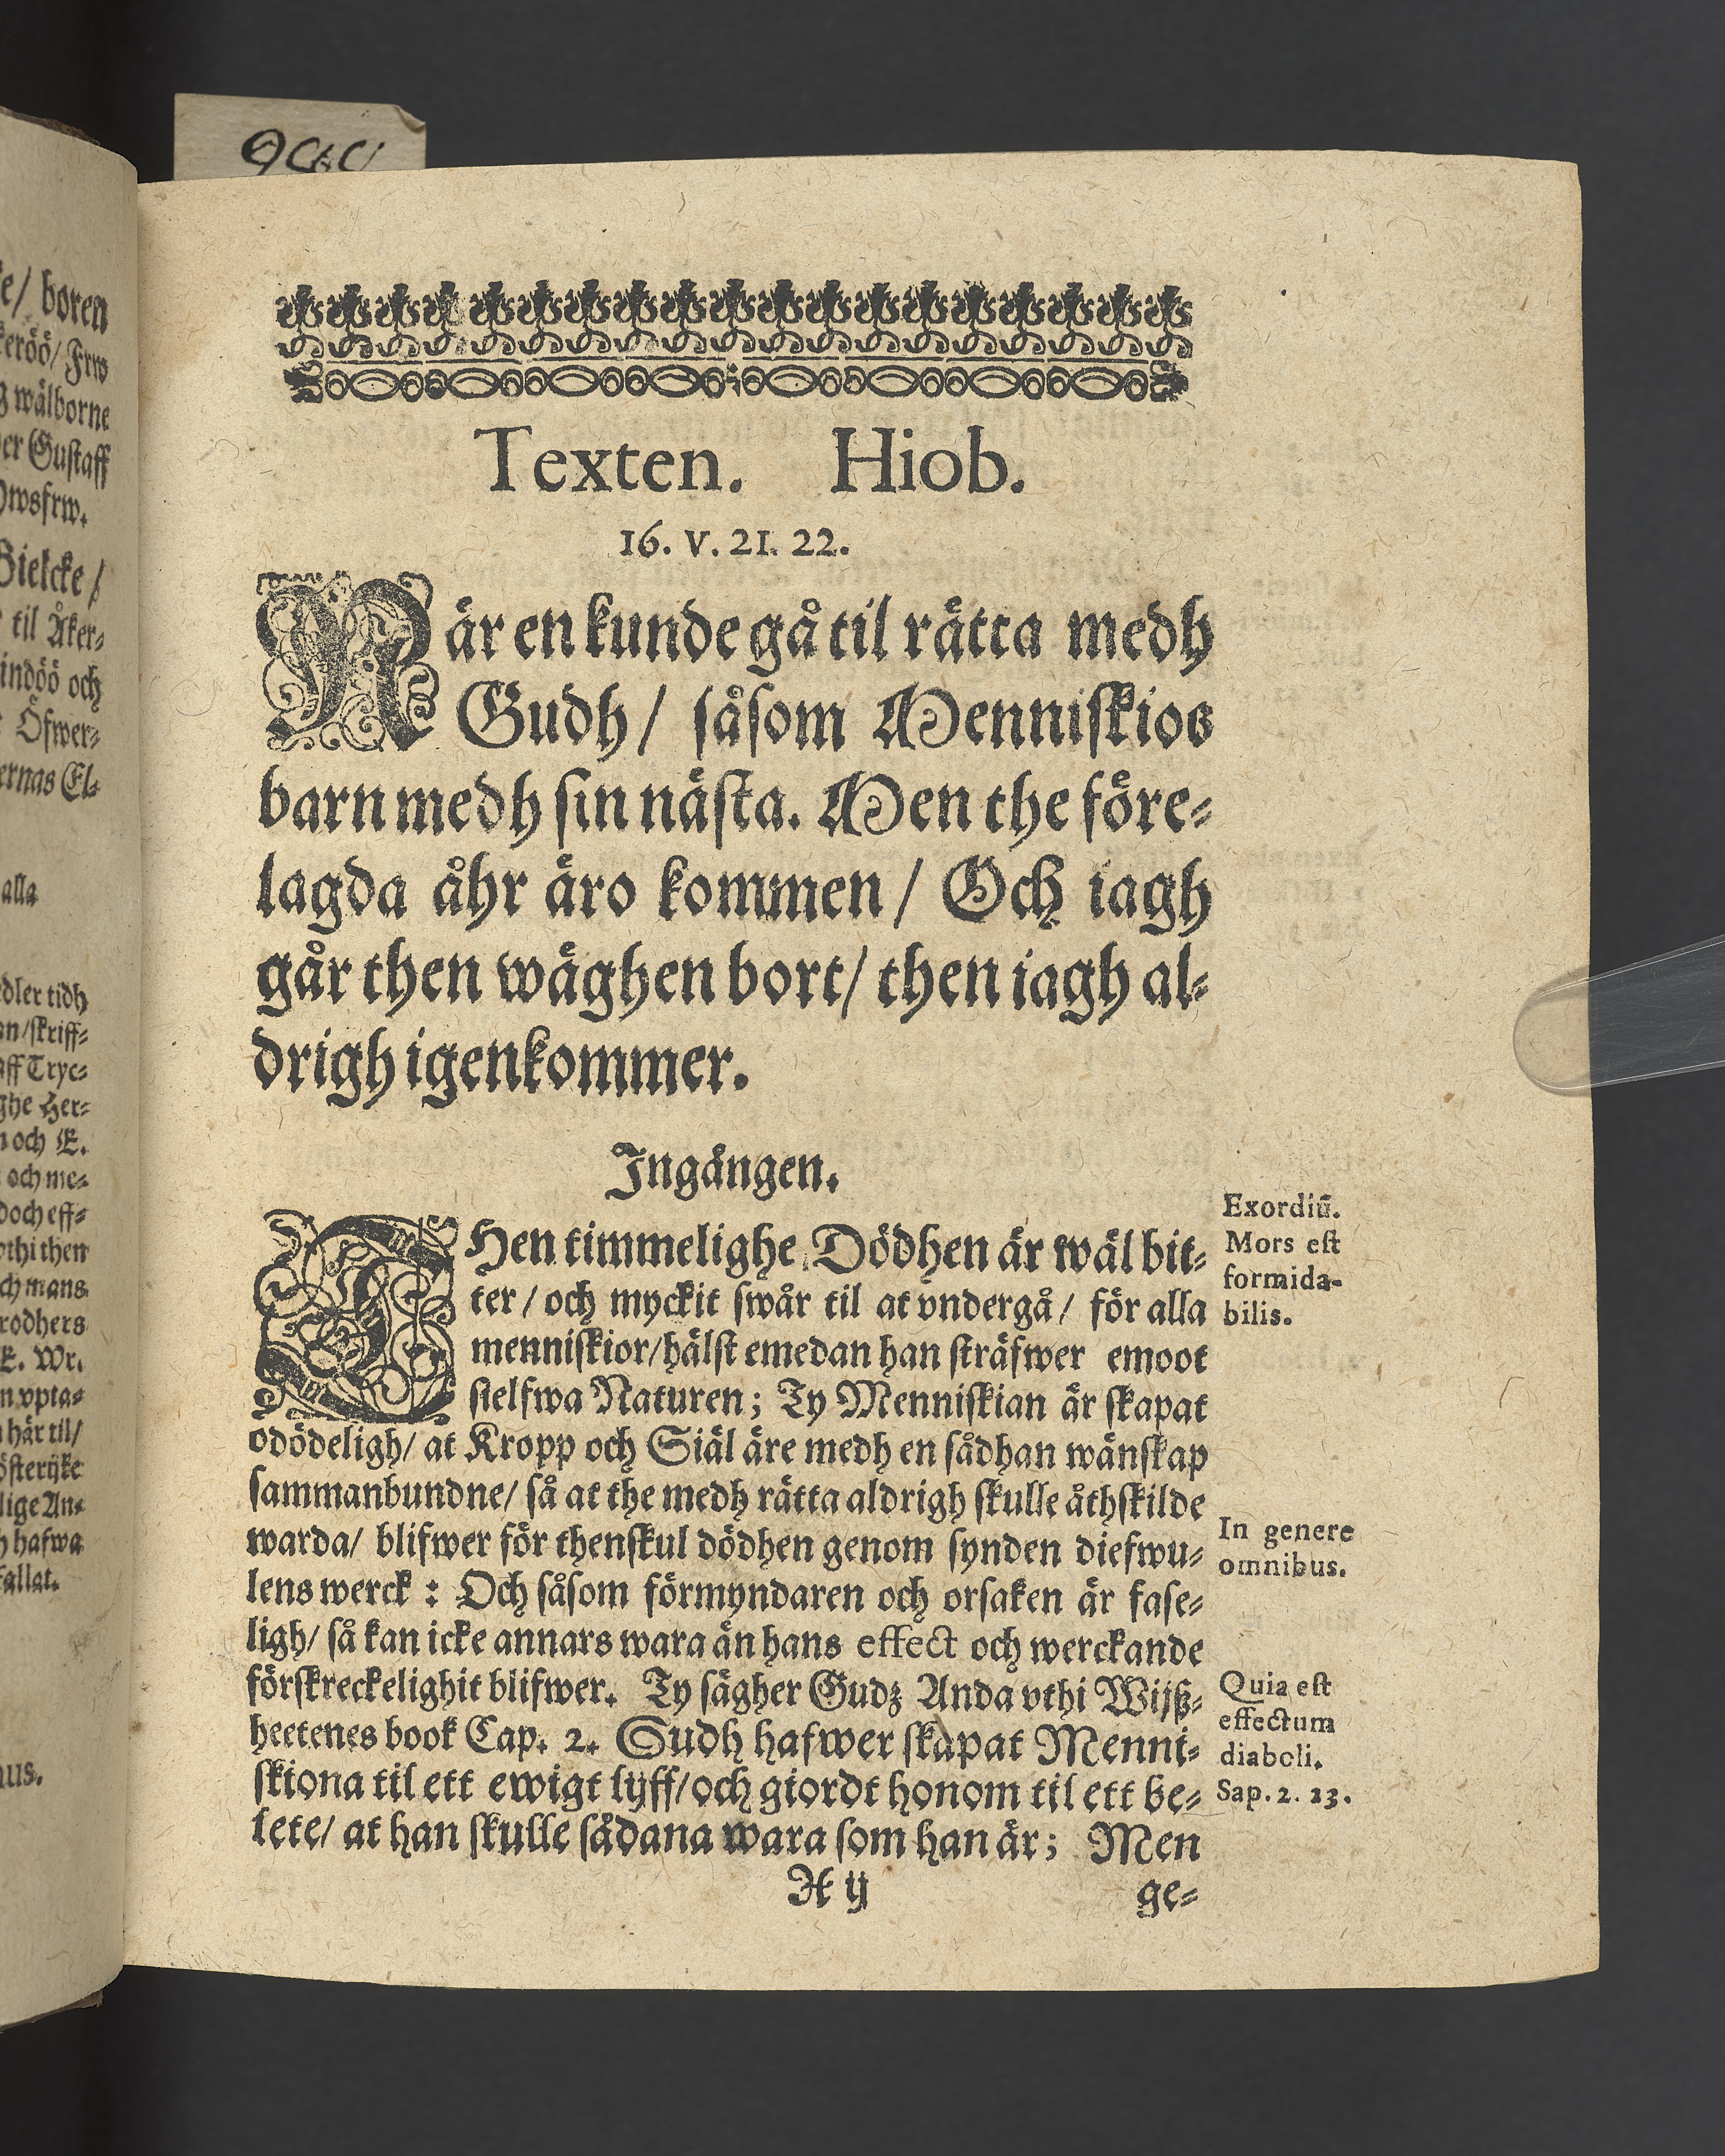 e/ boren
keröö/ Frw
g wälborne
er Gustaff
wsfrw.
Bielcke/
til Åker-
indöö och
Öfwer-
ernas El-
alla
dler tidh
an/skriff-
aff Tryc-
ghe Her-
och E.
och me-
doch eff-
othi then
ch mans
rodhers
E. Wr.
n vpta-
här til/
österijke
lige An-
hafwa
fallat.
us.
Texten. Hiob.
16. V. 21. 22.
När en kunde gå til rätta medh
Gudh/ såsom Menniskios
barn medh sin nästa. Men the före-
lagda åhr äro kommen/ Och iagh
går then wäghen bort/ then iagh al-
drigh igenkommer.
Ingången.
THen timmelighe Dödhen är wäl bit-
ter/ och myckit swår til at vndergå/ för alla
menniskior/hälst emedan han sträfwer emoot
sielfwa Naturen; Ty Menniskian är skapat
odödeligh/ at Kropp och Siäl äre medh en sådhan wänskap
sammanbundne/ så at the medh rätta aldrigh skulle åthskilde
warda/ blifwer för thenskul dödhen genom synden diefwu-
lens werck: Och såsom förmyndaren och orsaken är fase-
ligh/ så kan icke annars wara än hans effect och werckande
förskreckelighit blifwer. Ty sägher Gudz Anda vthi Wijß-
heetenes book Cap. 2. Gudh hafwer skapat Menni-
skiona til ett ewigt lijff/och giordt honom til ett be-
lete/ at han skulle sådana wara som han är; Men
H ij ge-
Exordiū.
Mors est
formida-
bilis.
In genere
omnibus.
Quia est
effectum
diaboli.
Sap. 2. 23.